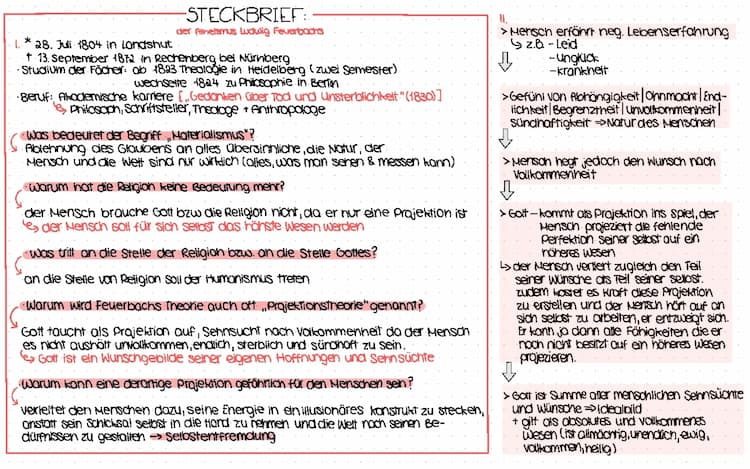 STECKBRIEF:
der Atheismus Ludwig Feuerbachs
I. * 28. Juli 1804 in Landshut
† 13. September 1872 in Rechenberg bei Nürnberg
· Studium der Fächer: ab 1823 Theologie in Heidelberg (zwei Semester)
wechselte 1824 zu Philosophie in Berlin
· Beruf: Akademische Karriere [„Gedanken über Tod und Unsterblichkeit" (1830)]
↳ Philosoph, Schriftsteller, Theologe + Anthropologe
· Was bedeutet der Begriff „Materialismus"?
Ablehnung des Glaubens an alles Übersinnliche, die Natur, der
Mensch und die Welt sind nur wirklich (alles, was man sehen & messen kann)
· Warum hat die Religion keine Bedeutung mehr?
der Mensch brauche Gott bzw die Religion nicht, da er nur eine Projektion ist
↳ der Mensch soll für sich selbst das höhste Wesen werden
· Was tritt an die Stelle der Religion bzw. an die Stelle Gottes?
an die Stelle von Religion soll der Humanismus treten
· Warum wird Feuerbachs Theorie auch oft „Projektionstheorie" genannt?
Gott taucht als Projektion auf, Sehnsucht nach Vollkommenheit da der Mensch
es nicht aushält unvollkommen, endlich, sterblich und sündhaft zu sein.
↳ Gott ist ein Wunschgebilde seiner eigenen Hoffnungen und Sehnsüchte
· Warum kann eine derartige Projektion gefährlich für den Menschen sein?
verleitet den Menschen dazu, seine Energie in ein illusionäres Konstrukt zu stecken,
anstatt sein Schicksal selbst in die Hand zu nehmen und die Welt nach seinen Be-
dürfnissen zu gestalten → Selbstentfremdung
II.
> Mensch erfährt neg. Lebenserfahrung
↳ z.B. - Leid
- Unglück
- Krankheit
> Gefühl von Abhängigkeit | Ohnmacht | End-
lichkeit | Begrenztheit | Unvollkommenheit |
Sündhaftigkeit ⇒ Natur des Menschen
> Mensch hegt jedoch den Wunsch nach
Vollkommenheit
> Gott - kommt als Projektion ins Spiel, der
Mensch projeziert die fehlende
Perfektion seiner selbst auf ein
höheres Wesen
↳ der Mensch verliert zugleich den Teil
seiner Wünsche als Teil seiner selbst.
zudem kostet es Kraft diese Projektion
zu erstellen und der Mensch hört auf an
sich selbst zu arbeiten, er entzweigt sich.
Er kann ja dann alle Fähigkeiten die er
noch nicht besitzt auf ein höheres Wesen
projezieren.
> Gott ist Summe aller menschlichen Sehnsüchte
und Wünsche ⇒ Idealbild
+ gilt als absolutes und vollkommenes
Wesen (ist allmächtig, unendlich, ewig,
vollkommen, heilig)